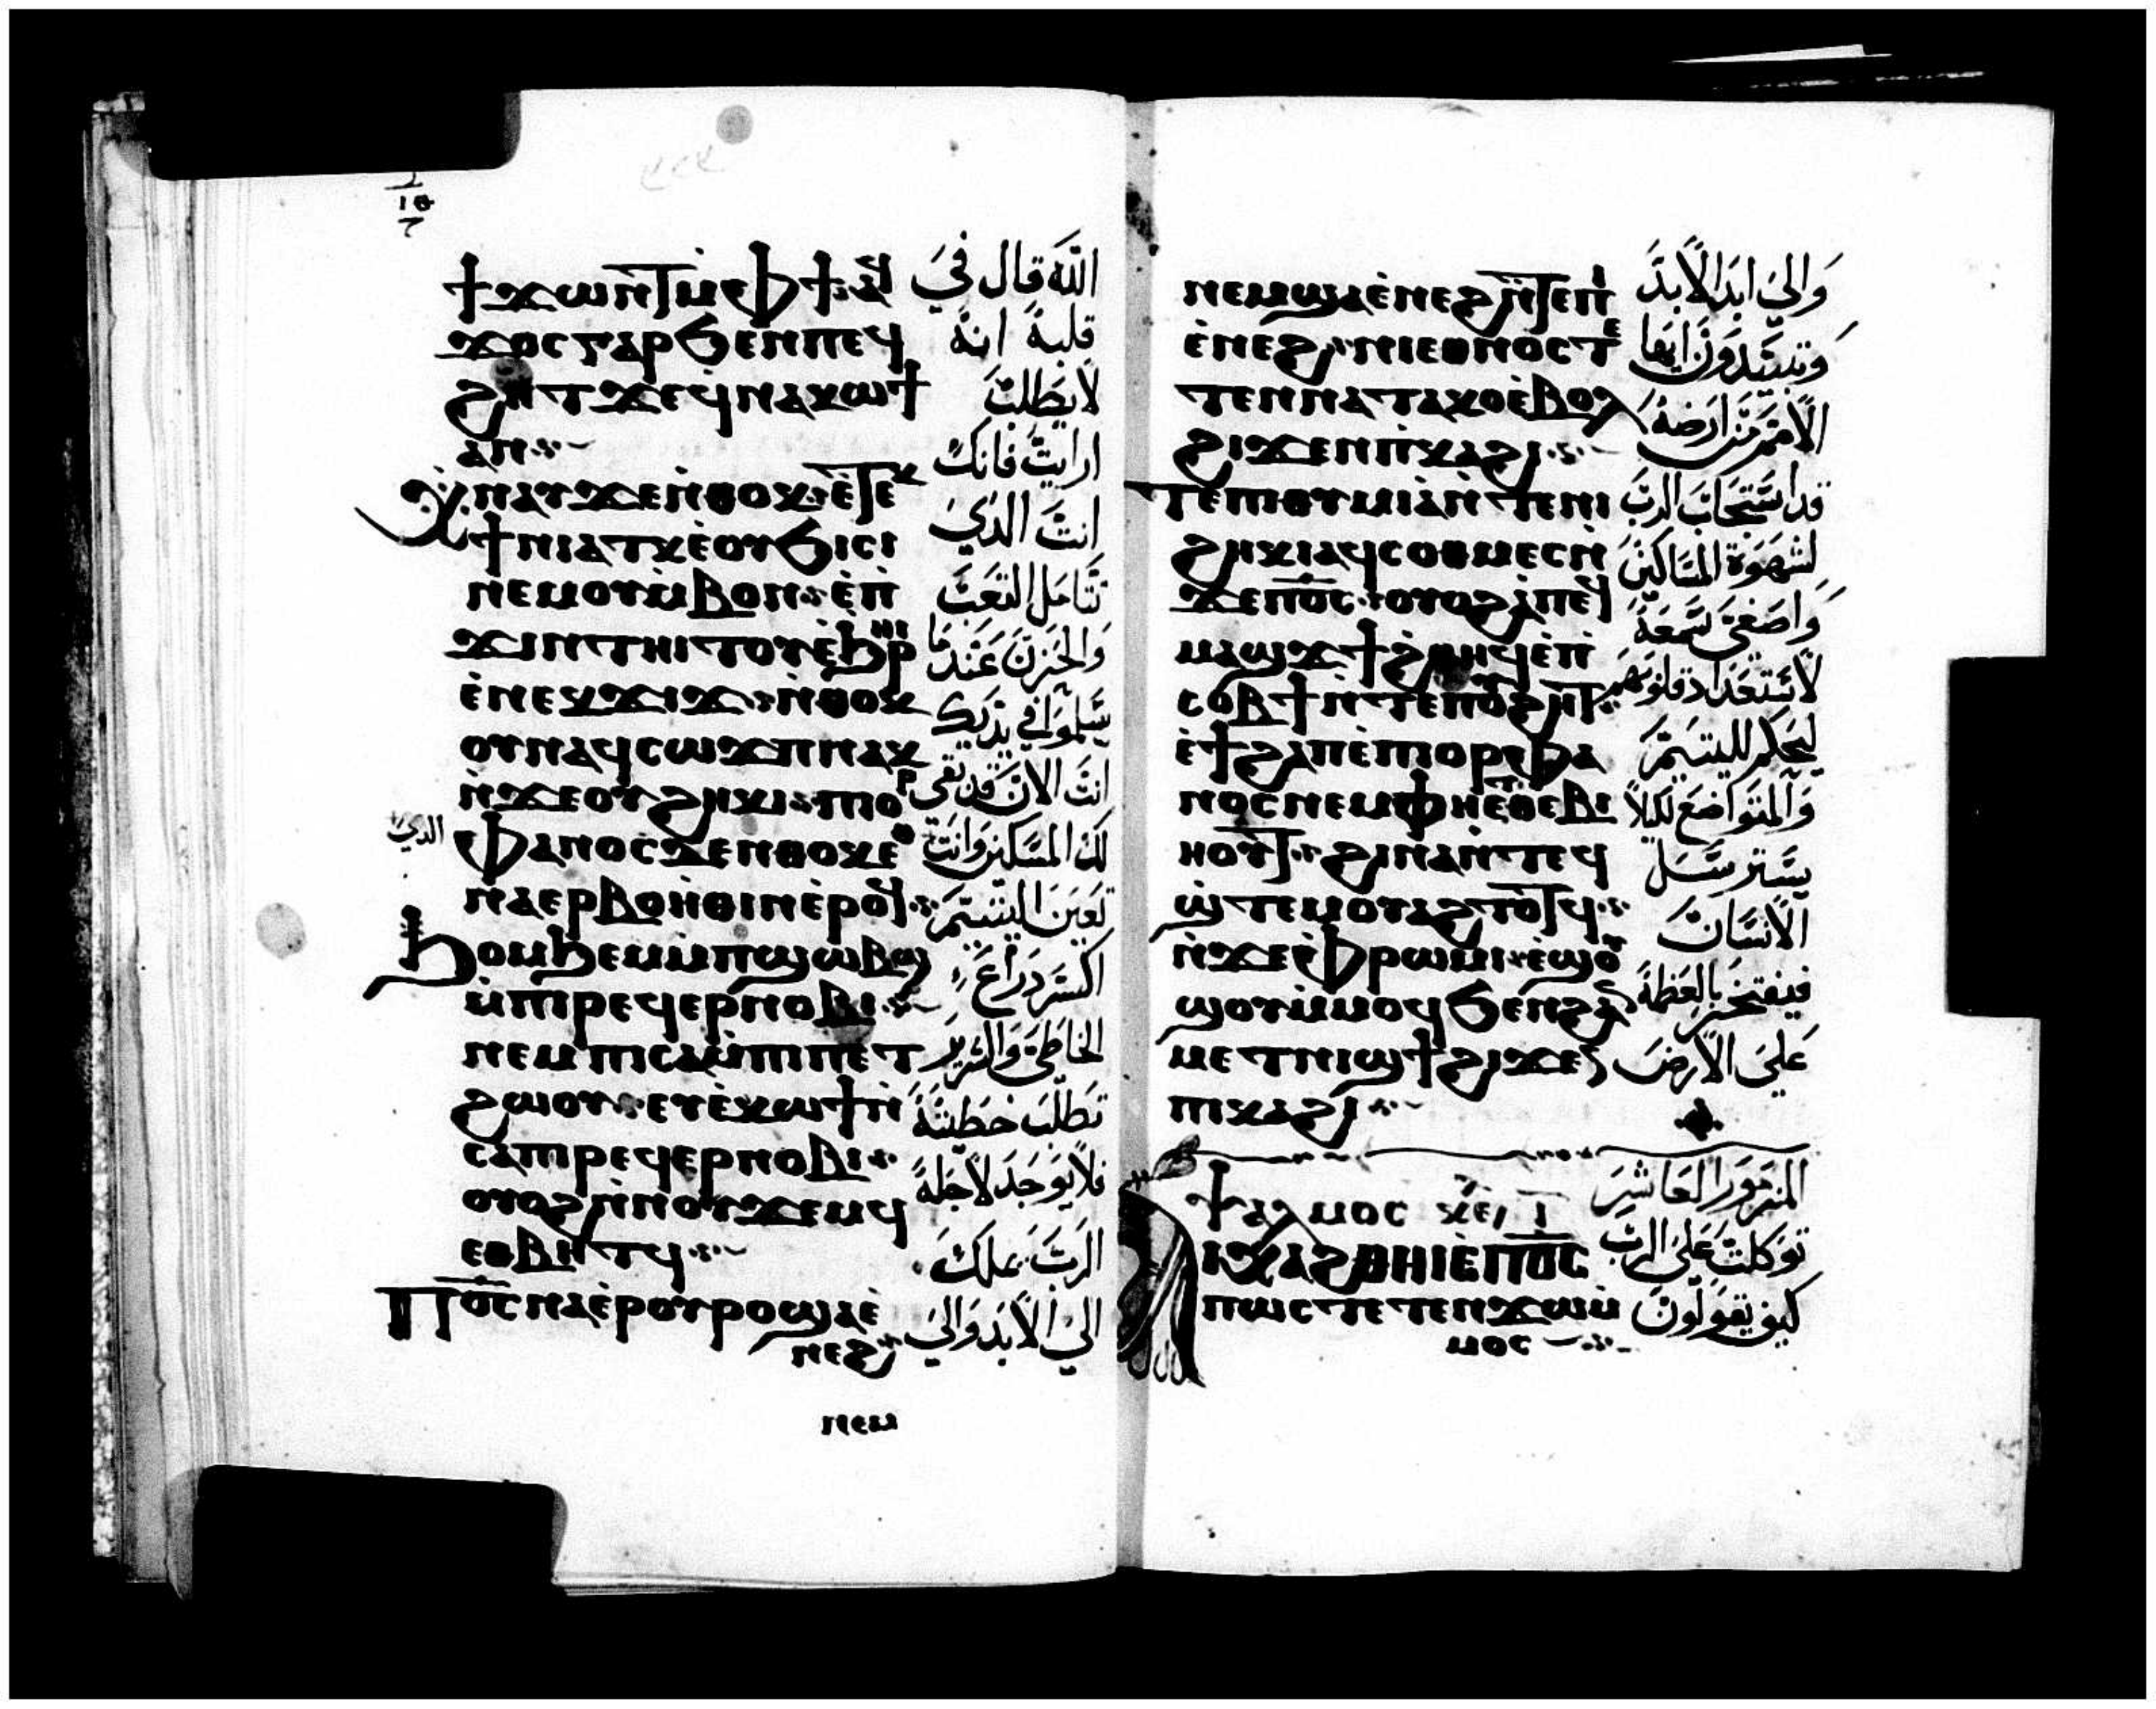 ϯϫⲱⲛⲧ ⲙⲫϯ ⲁϥ
ϫⲟⲥ ⲅⲁⲣ ϧⲉⲛ ⲡⲉϥ
ϩⲏⲧ ϫⲉ ϥⲛⲁⲕⲱϯ
ⲁⲛ
ⲭⲛⲁⲩ ϫⲉ ⲛⲑⲟⲕ
ϯⲛⲓⲁⲧⲕ ⲉⲟⲩϧⲓⲥⲓ
ⲛⲉⲙ ⲟⲩⲙⲃⲟⲛ ⲉⲡ
ϫⲓⲛⲧⲏⲓⲧⲟⲩ ⲉϧⲣⲏⲓ
ⲉⲛⲉⲕϫⲓϫ ⲛⲑⲟⲕ
ⲟⲩⲛ ⲁϥⲥⲱϫⲡ ⲛⲁⲕ
ⲛϫⲉ ⲟⲩϩⲏⲕⲓ ⲡⲓⲟⲣ
ⲫⲁⲛⲟⲥ ϫⲉ ⲛⲑⲟⲕ ⲉⲑ
ⲛⲁⲉⲣⲃⲟⲏⲑⲓⲛ ⲉⲣⲟϥ
ϧⲟⲙϧⲉⲙ ⲙⲡϣⲱⲃϣ
ⲙⲡⲓⲣⲉϥⲉⲣⲛⲟⲃⲓ
ⲛⲉⲙ ⲡⲓⲥⲁⲙⲡⲓⲡⲉⲧ
ϩⲱⲟⲩ ⲉⲩⲉⲕⲱϯ ⲛ
ⲥⲁ ⲡⲓⲣⲉϥⲉⲣⲛⲟⲃⲓ
ⲟⲩⲟϩ ⲛⲛⲟⲩϫⲉⲙϥ
ⲉⲑⲃⲏⲧϥ
Ⲡⲟ̅ⲥ̅ ⲛⲁⲉⲣⲟⲩⲣⲟ ϣⲁⲉ
ⲛⲉϩ
ⲛⲉⲙ
الله قال في
قلبه انه
لا يطلب
ارايت فانك
انت الذي
تتامل التعب
والحزن عند ما
تسلموا في يديك
انت الان قد بقى
لك المسكين وانت
الذي
تعين اليتيم
اكسر دراع
الخاطي والشرير
تطلب خطيته
فلا يوجد لاجله
الرب علك
الى الابد والى
ⲛⲉⲙ ϣⲁ ⲉⲛⲉϩ ⲛⲧⲉ ⲡⲓ
ⲉⲛⲉϩ ⲛⲓⲉⲑⲛⲟⲥ ⲧⲉ
ⲧⲉⲛⲛⲁⲧⲁⲕⲟ ⲉⲃⲟⲗ
ϩⲓϫⲉⲛ ⲡⲕⲁϩⲓ
Ⲧⲉⲡⲓⲑⲩⲙⲓⲁ ⲛⲧⲉ ⲛⲓ
ϩⲏⲕⲓ ⲁϥⲥⲟⲑⲙⲉⲥ ⲛ
ϫⲉ ⲡⲟ̅ⲥ̅ ⲟⲩⲟϩ ⲁⲡⲉϥ
ⲙⲁϣϫ ϯϩⲑⲏϥ ⲉⲡ
ⲥⲟⲃϯ ⲛⲧⲉ ⲡⲟⲩϩⲏⲧ
ⲉϯϩⲁⲡ ⲉⲡⲓⲟⲣⲫⲁ
ⲛⲟⲥ ⲛⲉⲙ ⲫⲏⲉⲧⲑⲉⲃⲓ
ⲏⲟⲩⲧ ϩⲓⲛⲁ ⲛⲧⲉϥ
ϣⲧⲉⲙⲟⲩⲁϩⲧⲟⲧϥ
ⲛϫⲉ ⲫⲣⲱⲙⲓ ⲉϣⲟⲩ
ϣⲟⲩ ⲙⲙⲟϥ ϧⲉⲛ ϩⲁⲛ
ⲙⲉⲧⲛⲓϣϯ ϩⲓϫⲉⲛ
ⲡⲓⲕⲁϩⲓ
ⲯⲁⲗⲙⲟⲥ ⲕⲉ ⲓ
ⲁⲓⲭⲁϩⲑⲏⲓ ⲉⲡⲟ̅ⲥ̅
ⲡⲱⲥ ⲧⲉⲧⲉⲛϫⲱ ⲙ
ⲙⲟⲥ
والى ابد الابد
وتبيدون ايها
الامم من ارضه
قد استجاب الرب
لشهوة المساكين
واصغى سمعه
لاستعداد قلوبهم
ليحكم لليتيم
والمتواضع لكيلا
الانسان
فيفتخر بالعظمة
على الارض
المزمور العاشر
توكلت على الرب
كيف تقولون